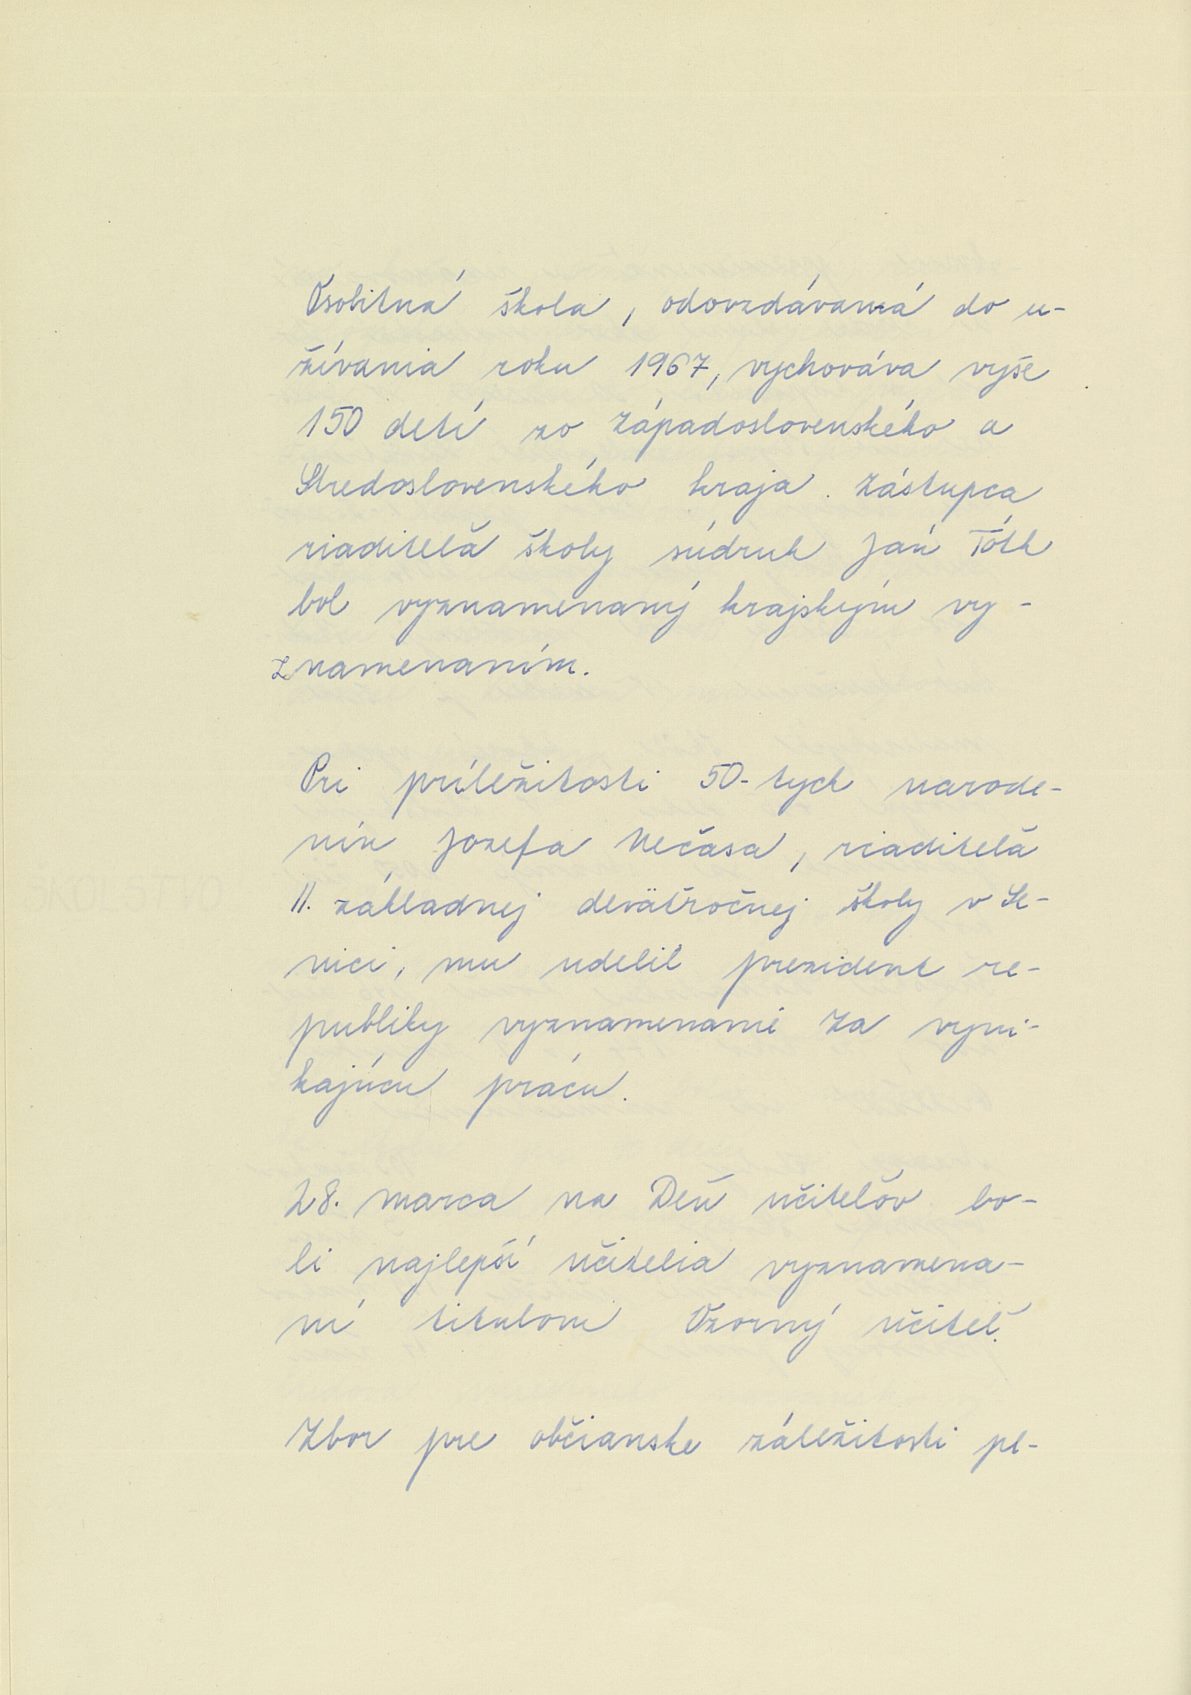 Osobitná škola, odovzdávaná do u-
žívania roku 1967, vychováva vyše
150 detí zo Západoslovenského a
Stredoslovenského kraja. Zástupca
riaditeľa školy súdruh Ján Tóth
bol vyznamenaný krajským vy-
znamenaním.
Pri príležitosti 50-tych narode-
nín Jozefa Nečasa, riaditeľa
II. základnej deväťročnej školy v Se-
nici, mu udelil prezident re-
publiky vyznamenanie Za vyni-
kajúcu prácu.
28. marca na Deň učiteľov bo-
li najlepší učitelia vyznamena-
ní titulom Vzorný učiteľ.
Zbor pre občianske záležitosti pl-